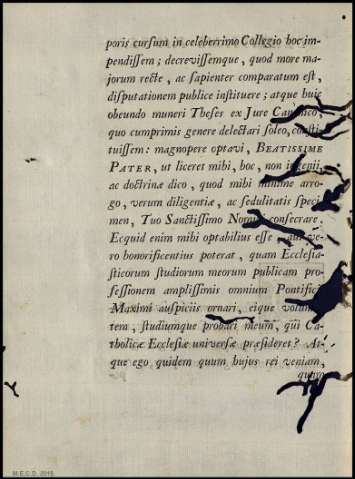 poris cursum in celeberrimo Collegio hoc im-
pendissem; decrevissemque, quod more ma-
jorum recte, ac sapienter comparatum est,
disputationem publice instituere; atque huic
obeundo muneri Theses ex Jure Canonico,
quo cumprimis genere delectari soleo, consti-
tuissem: magnopere optavi, BEATISSIME
PATER, ut liceret mihi, hoc, non ingenii,
ac doctrinæ dico, quod mihi minime arro-
go, verum diligentiæ, ac sedulitatis speci
men, Tuo Sanctissimo Nomini consecrare.
Ecquid enim mihi optabilius esse aut ve-
ro honorificentius poterat, quam Ecclesia-
sticorum studiorum meorum publicam pro-
fessionem amplissimis omnium Pontificis
Maximi auspiciis ornari, eique volunta
tem, studiumque probari meum, qui Ca-
tholicæ Ecclesiæ universæ præsideret? At-
que ego quidem quum hujus rei veniam,
M.E.C.D. 2015